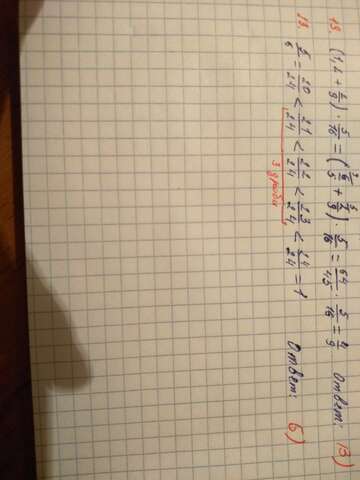 18. (1,2 + 2/9) · 5/16 = (6/5 + 2/9) · 5/16 = 64/45 · 5/16 = 4/9 Ответ: В)
19. 5/6 = 20/24 < 21/24 < 22/24 < 23/24 < 24/24 = 1 Ответ: Б)
3 дроби